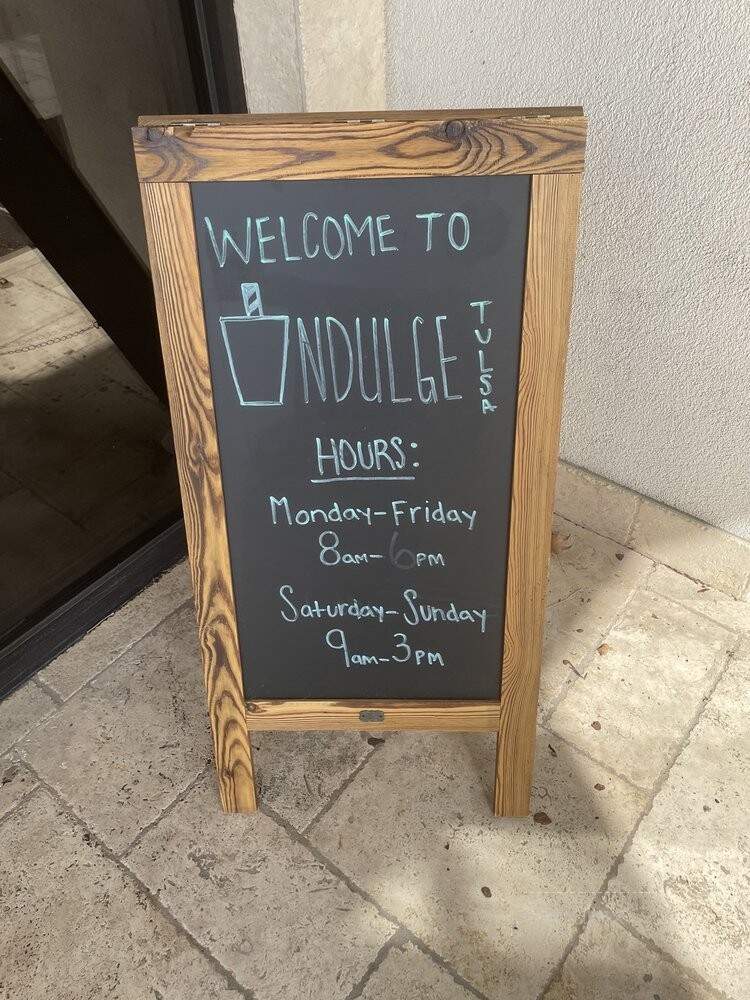 WELCOME TO
INDULGE TULSA
HOURS:
Monday-Friday
8am-6pm
Saturday-Sunday
9am-3pm